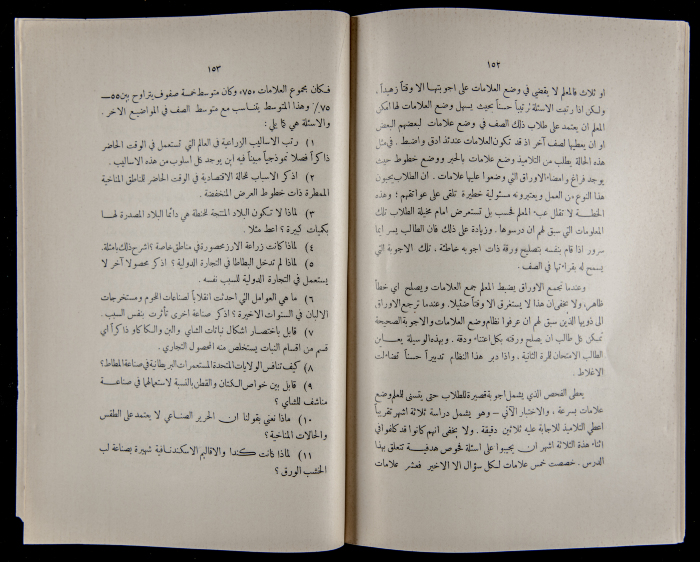 ١٥٢
او ثلاث فالمعلم لا يقضي في وضع العلامات على اجوبتها الا وقتاً زهيداً ،
ولكن اذا رتبت الاسئلة ترتيباً حسناً بحيث يسهل وضع العلامات لها امكن
المعلم ان يعتمد على طلاب ذلك الصف في وضع علامات لبعضهم البعض
او ان يعطيها لصف آخر اذ قد تكون العلامات عندئذ ادق واضبط . في مثل
هذه الحالة يطلب من التلاميذ وضع علامات بالحبر ووضع خطوط حيث
يوجد فراغ وامضاء الاوراق التي وضعوا عليها علامات . ان الطلاب يحبون
هذا النوع من العمل ويعتبرونه مسئولية خطيرة تلقى على عواتقهم ؛ وهذه
الخطـة لا تقلل عبء المعلم فحسب بل تستعرض امام مخيلة الطلاب تلك
المعلومات التي سبق لهم ان درسوها . وزيادة على ذلك فان الطالب يسر ايما
سرور اذا قام بنفسه بتصليح ورقة ذات اجوبه خاطئة ، تلك الاجوبة التي
يسمح له بقراءتها في الصف .
وعندما تجمع الاوراق يضبط المعلم جمع العلامات ويصلح اي خطأ
ظاهر، ولا يخفى ان هذا لا يستغرق الا وقتاً ضئيلا. وعندما ترجع الاوراق
الى ذويها الذين سبق لهم ان عرفوا نظام وضع العلامات والاجوبة الصحيحة
تمكن كل طالب ان يصلح ورقته بكل اعتناء ودقة . وبهذه الوسيلة يعـاين
الطالب الامتحان للمرة الثانية . واذا دبر هذا النظام تدبيراً حسناً تضاءلت
الاغلاط .
يعطى الفحص الذي يشمل اجوبة قصيرة للطلاب حتى يتسنى للمعلم وضع
علامات بسرعة . والاختبار الآتي – وهو يشمل دراسة ثلاثة اشهر تقريباً
اعطي التلاميذ للاجابة عليه ثلاثين دقيقة . ولا يخفى انهم كانوا قد كلفوا في
اثناء هذة الثلاثة اشهر ان يجيبوا على اسئلة فحوص هدفيـة تتعلق بهذا
الدرس . خصصت خمس علامات لكل سؤال الا الاخير فعشر علامات
١٥٣
فكان مجموع العلامات «٧٥» وكان متوسط خمسة صفوف يتراوح بين ٥٥ــ
٧٥٪ وهذا المتوسط يتناسب مع متوسط الصف في المواضيع الاخر .
والاسئلة هي كما يلي :
١) رتب الاساليب الزراعية في العالم التي تستعمل في الوقت الحاضر
ذاكراً فصلا نموذجياً مبيناً فيه اين يوجد كل اسلوب من هذه الاساليب .
٢) اذكر الاسباب للحالة الاقتصادية في الوقت الحاضر للمناطق المناخية
الممطرة ذات خطوط العرض المنخفضة .
٣) لماذا لا تكون البلاد المنتجة للحنطة هي دائماً البلاد المصدرة لهـا
بكميات كبيرة ؟ اعط مثلا .
٤) لماذا كانت زراعة الارز محصورة في مناطق خاصة ؟ اشرح ذلك بامثلة.
٥) لماذا لم تدخل البطاطا في التجارة الدولية ؟ اذكر محصولا آخر لا
يستعمل في التجارة الدولية للسبب نفسه .
٦) ما هي العوامل التي احدثت انقلاباً لصناعات اللحوم ومستخرجات
الالبان في السنوات الاخيرة ؟ اذكر صناعة اخرى تأثرت بنفس السبب .
٧) قابل باختصار اشكال نباتات الشاي والبن والكاكاو ذاكراً اي
قسم من اقسام النبات يستخلص منه المحصول التجاري .
٨) كيف تنافس الولايات المتحدة المستعمرات البريطانية في صناعة المطاط؟
٩) قابل بين خواص الكتان والقطن بالنسبة لاستعمالهما في صناعـة
مناشف للشاي ؟
١٠) ماذا نعني بقولنا ان الحرير الصناعي لا يعتمد على الطقس
والحالات المناخية ؟
١١) لماذا كانت كندا والاقاليم الاسكندنافية شهيرة بصناعة لب
الخشب الورق ؟